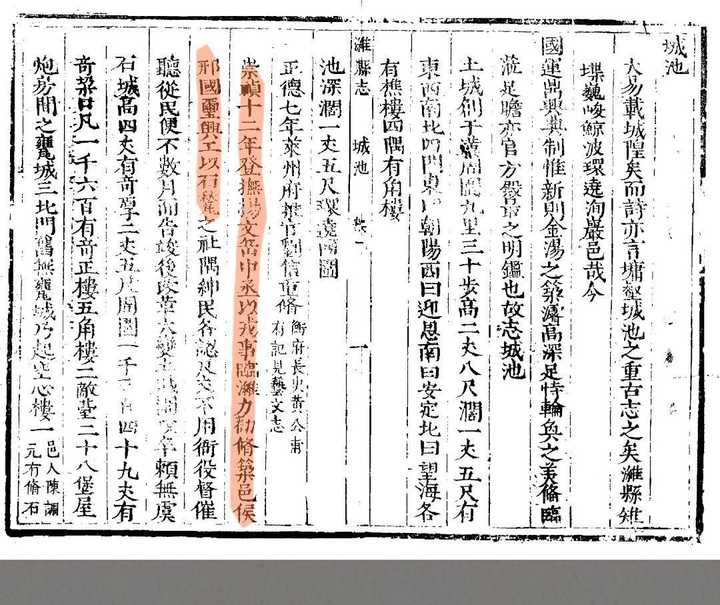 城池
大易載城隍矣而詩亦言墉壑城池之重古志之矣濰縣雉
堞巍峻鯨波環遶洵巖邑哉今
國運鼎興典制惟新則金湯之築濬高深足恃輪奐之美脩臨
蒞足瞻亦官方殿最之明鑑也故志城池
土城創于漢周圍九里三十步高二丈八尺濶一丈五尺有
東西南北四門東曰朝陽西曰迎恩南曰安定北曰望海各
有樵樓四隅有角樓
濰縣志 城池 一
池深濶一丈五尺環遶四圍
正德七年萊州府推官劉信重脩 衡府長史黃公甫有記見藝文志
崇禎十二年登撫楊文岳中丞以戎事臨濰力劝脩築邑侯
邢國璽興工以石甃之社隅紳民各認及丈不用衙役督催
聽從民便不數月而告竣後改革大變 賴無虞
石城高四丈有奇厚二丈五尺周圍一千 百四十九丈有
奇垜口凡一千六百有奇正樓五角樓二敵臺二十八堡屋
炮房間之甕城三北門舊無甕城乃起空心樓一 邑人陳調元有脩石